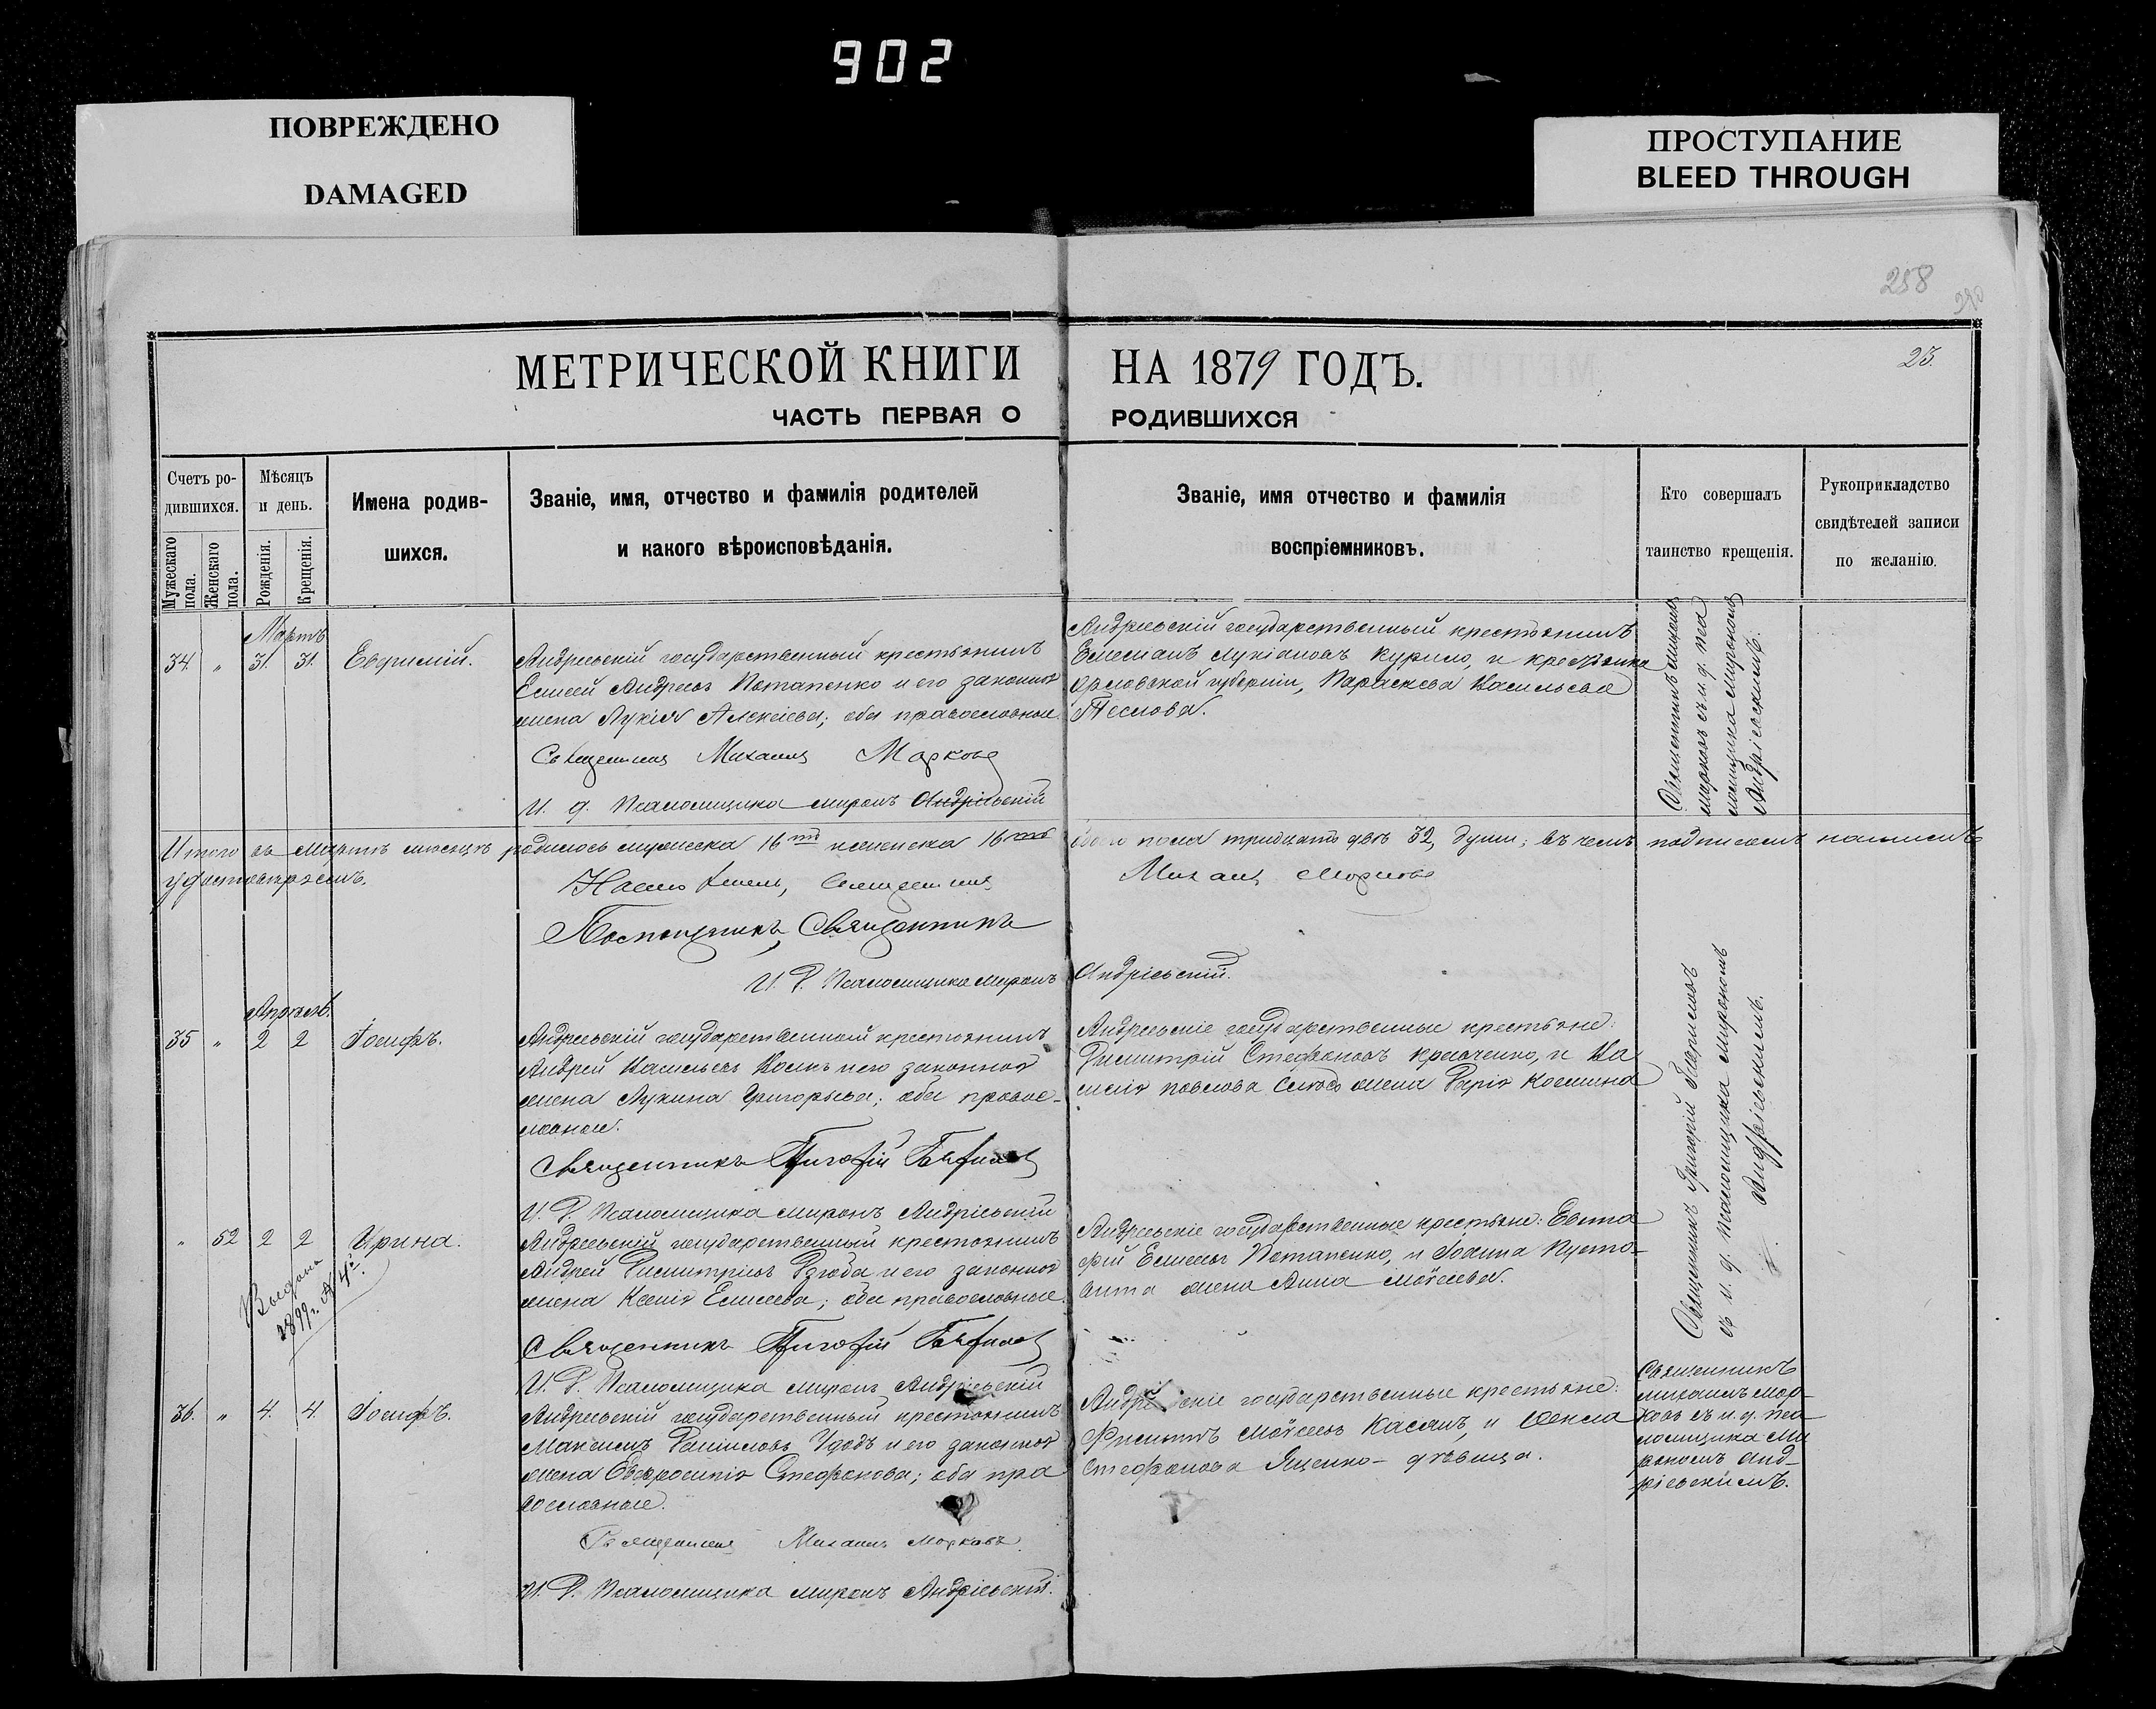 902
ПОВРЕЖДЕНО
DAMAGED
ПРОСТУПАНИЕ
BLEED THROUGH
258
23.
МЕТРИЧЕСКОЙ КНИГИ НА 1879 ГОДЪ.
ЧАСТЬ ПЕРВАЯ О РОДИВШИХСЯ
Счетъ ро-
дившихся.
Мужескаго пола.
Женскаго пола.
Мѣсяцъ
и день.
Рожденія.
Крещенія.
Имена родив-
шихся.
Званіе, имя, отчество и фамилія родителей
и какого вѣроисповѣданія.
Званіе, имя отчество и фамилія
воспріемниковъ.
Кто совершалъ
таинство крещенія.
Рукоприкладство
свидѣтелей записи
по желанію.
Мартъ
34 " 31. 31. Евѳимій.
Андреевскій государственный крестьянинъ
Елисей Андреевъ Потапенко и его законная
жена Лукія Алексіева; оба православные.
Священникъ Михаилъ Марковъ
И. д. Псаломщика Миронъ Андріевскій
Андреевскій государственный крестьянинъ
Емеліанъ Лукіановъ Курило, и крестьянка
Орловской губерніи, Параскева Васильева
Теслова.
Священникъ Михаилъ
Марковъ съ и. д. пса
ломщика Мирономъ
Андріевскимъ.
Итого въ Мартѣ мѣсяцѣ родилось мужеска 16ть женска 16ть обоего пола тридцать двѣ 32, души; въ чемъ подписомъ нашимъ
удостовѣряемъ.
Настоятель, Священникъ Михаилъ Марковъ
Помощникъ, Священникъ
И. Д. Псаломщика Миронъ Андріевскій.
Апрѣль.
35 " 2 2 Іосифъ.
Андреевскій государственный крестьянинъ
Андрей Васильевъ и его законная
жена Лукина Григорьева; оба правос-
лавные.
Священникъ Григорій
И. Д. Псаломщика Миронъ Андріевскій
Андреевскіе государственные крестьяне:
Димитрій Стефановъ Кравченко, и Ва
силія Павлова жена Дарія Космина
Священникъ Григорій
съ и. д. Псаломщика Мирономъ
Андріевскимъ.
" 52 2 2 Ирина.
Выдана
1899 г. № 4й.
Андреевскій государственный крестьянинъ
Андрей Димитріевъ Дзюба и его законная
жена Ксенія Елисеева; оба православные.
Священникъ Григорій
И. Д. Псаломщика Миронъ Андріевскій
Андреевскіе государственные крестьяне: Евста
фій Елисеевъ Потапенко, и Іоанна Пусто-
вита жена Анна Моѵсеева.
36. " 4. 4. Іосифъ.
Андреевскій государственный крестьянинъ
Максимъ Даниловъ Удодъ и его законная
жена Евфросинія Стефанова; оба пра
вославные.
Священникъ Михаилъ Марковъ.
И. Д. Псаломщика Миронъ Андріевскій.
Андреевскіе государственные крестьяне:
Филиппъ Моѵсеевъ Касанъ, и Ѳекла
Стефанова Яценко - дѣвица.
Священникъ
Михаилъ Мар-
ковъ съ и. д. пса
ломщика Ми
рономъ Анд-
ріевскимъ.